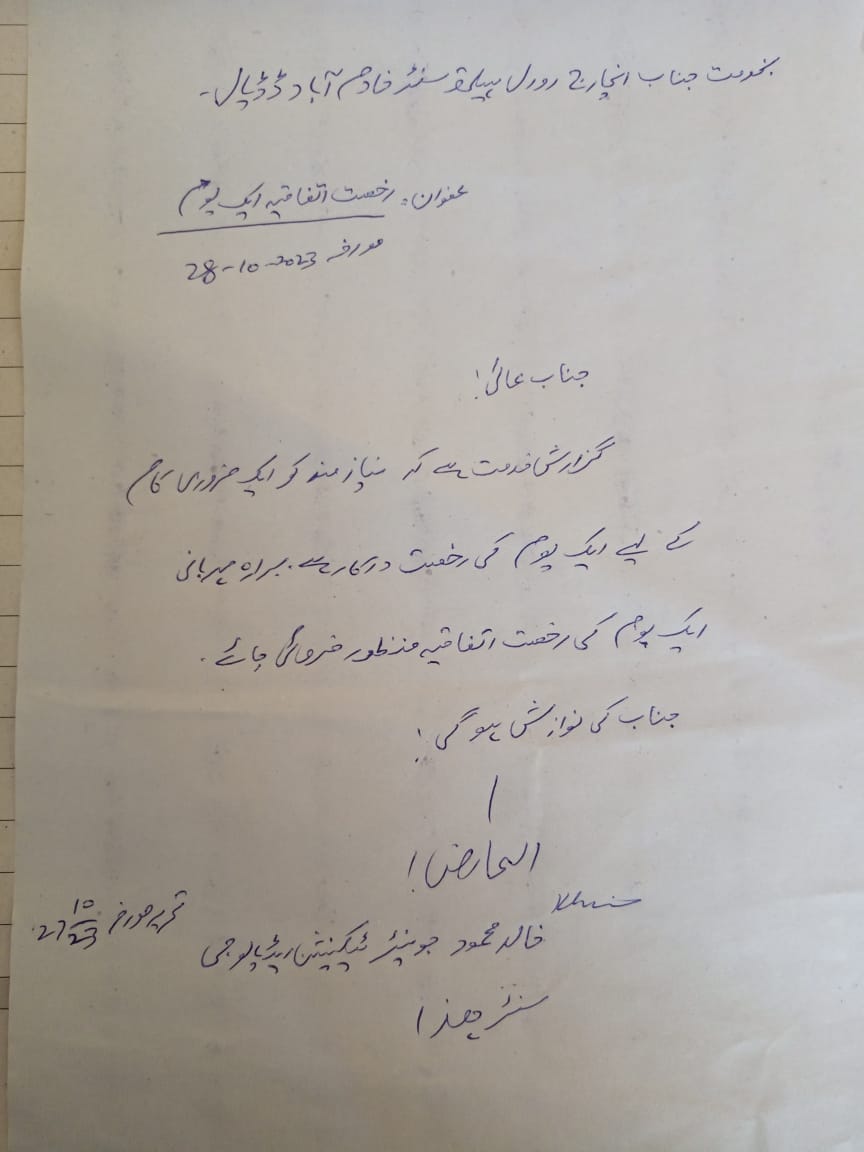 بخدمت جناب انچارج رورل ہیلتھ سنٹر خادم آباد ڈڈیال۔
عنوان: رخصت اتفاقیہ ایک یوم
مورخہ 28-10-2023
جناب عالی!
گزارش خدمت ہے کہ نیاز مند کو ایک ضروری کام
کے لیے ایک یوم کی رخصت درکار ہے۔ براہ مہربانی
ایک یوم کی رخصت اتفاقیہ منظور فرمائی جائے۔
جناب کی نوازش ہو گی!
العارض!
خالد محمود جونیئر ٹیکنیشن ریڈیالوجی
سنٹر ھذا
تحریر مورخہ 27 10/23